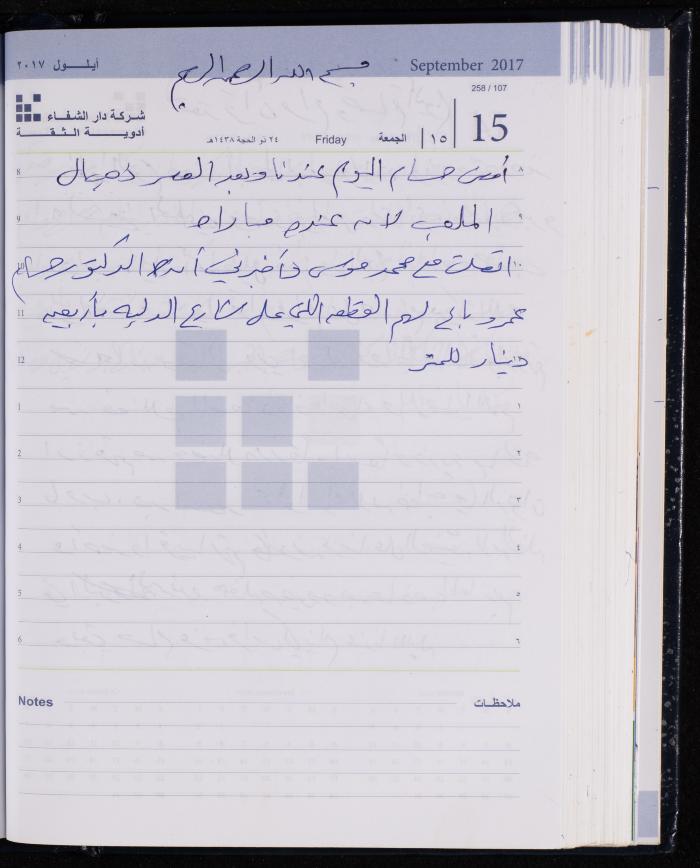 أيلـــول ٢٠١٧
بسم الله الرحمن الرحيم
September 2017
258 / 107
شركة دار الشفاء
أدويـــة الـثـقـــة
٢٤ ذو الحجة ١٤٣٨هـ
Friday الجمعة ١٥ 15
8 أمضى حسام اليوم عندنا وبعد العصر ذهب إلى ٨
9 الملعب لأنه عنده مباراه ٩
اتصلت مع محمد موسى وأخبرني أن الدكتور حسام ١٠
11 عمرو باع لهم القطعه اللي على شارع الدليه بأربعين
12 دينار للمتر
1 ١
2 ٢
3 ٣
4 ٤
5 ٥
6 ٦
Notes ملاحظـات